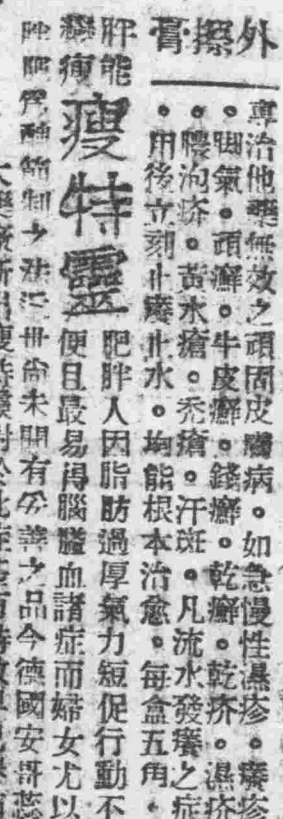 外擦膏
專治他藥無效之頑固皮膚病。如急慢性濕疹。癢疹
。脚氣。頑癬。牛皮癬。錢癬。乾癬。乾疥。濕疥
。膿泡疥。黃水瘡。禿瘡。汗斑。凡流水發癢之症
。用後立刻止癢止水。均能根本治愈。每盒五角。
胖能
變瘦
瘦特靈
肥胖人因脂肪過厚氣力短促行動不
便且最易得腦溢血諸症而婦女尤以
之 世尙未聞有 善之品今德國安哥